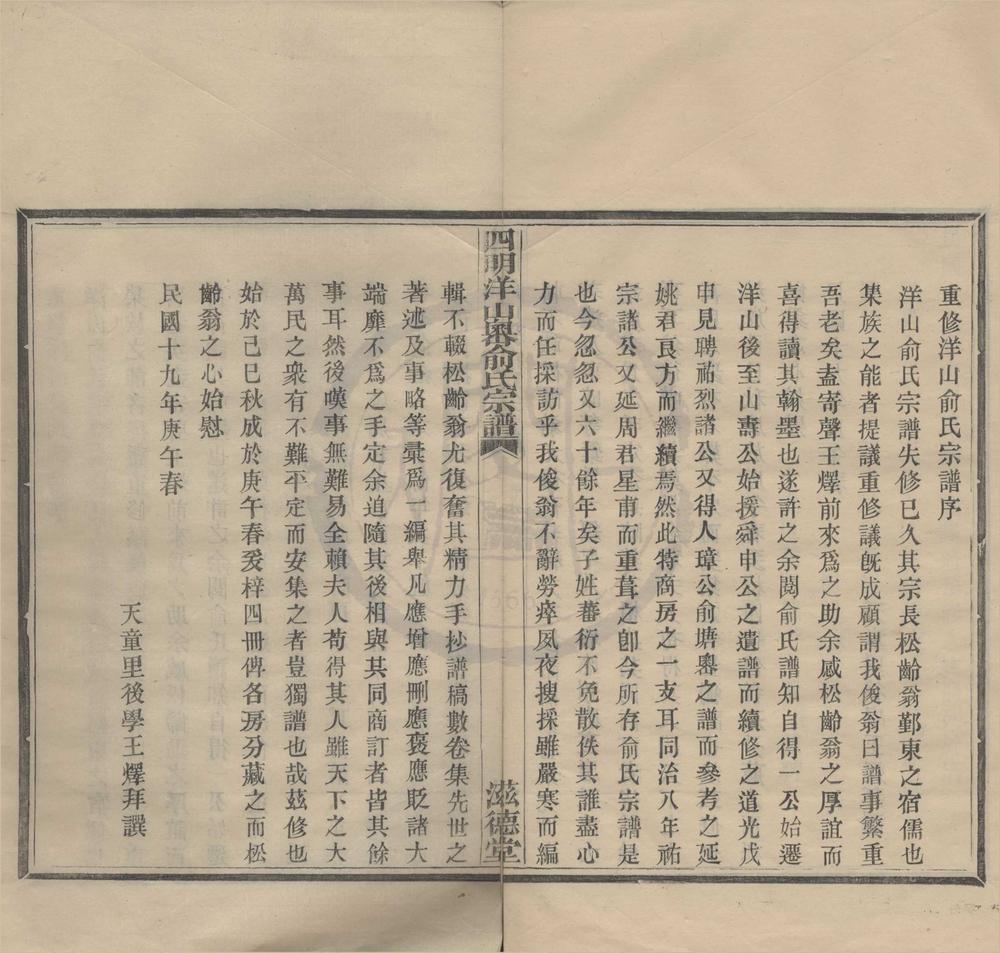 重修洋山俞氏宗譜序
洋山俞氏宗譜失修已久其宗長松齡翁鄞東之宿儒也
集族之能者提議重修議旣成顧謂我俊翁曰譜事繁重
吾老矣盍寄聲王燡前來爲之助余感松齡翁之厚誼而
喜得讀其翰墨也遂許之余閱俞氏譜知自得一公始遷
洋山後至山壽公始援舜申公之遺譜而續修之道光戊
申見聘祐烈諸公又得人璋公俞塘嶴之譜而參考之延
姚君良方而繼續焉然此特商房之一支耳同治八年祐
宗諸公又延周君星甫而重葺之卽今所存俞氏宗譜是
也今忽忽又六十餘年矣子姓蕃衍不免散佚其誰盡心
力而任採訪乎我俊翁不辭勞瘁夙夜搜採雖嚴寒而編
四明洋山嶴俞氏宗譜
滋德堂
輯不輟松齡翁尤復奮其精力手抄譜稿數卷集先世之
著述及事略等彙爲一編舉凡應增應刪應褒應貶諸大
端靡不爲之手定余追隨其後相與其同商訂者皆其餘
事耳然後嘆事無難易全賴夫人苟得其人雖天下之大
萬民之衆有不難平定而安集之者豈獨譜也哉茲修也
始於己巳秋成於庚午春爰梓四冊俾各房分藏之而松
齡翁之心始慰
民國十九年庚午春
天童里後學王燡拜譔